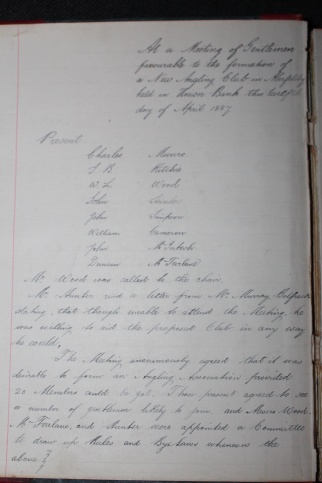 At a Meeting of Gentlemen
favourable to the formation of
a New Angling Club in
held in Union Bank this
day of April 1887
Present
Charles Munro
T. B. Ritchie
W. L. Wood
John
John Simpson
William Cameron
John McIntosh
Duncan McFarlane
Mr Wood was called to the chair
Mr Hunter read a letter from Mr Murray
stating, that though unable to attend the Meeting, he
was willing to aid the proposed Club in any way
he could.
The Meeting unanimously agreed that it was
desirable to form an Angling Association provided
20 Members could be got. Those present agreed to see
a number of gentlemen likely to join, and Messrs Wood,
McFarlane, and Hunter were appointed a Committee
to draw up Rules and Bye Laws whereon the
above